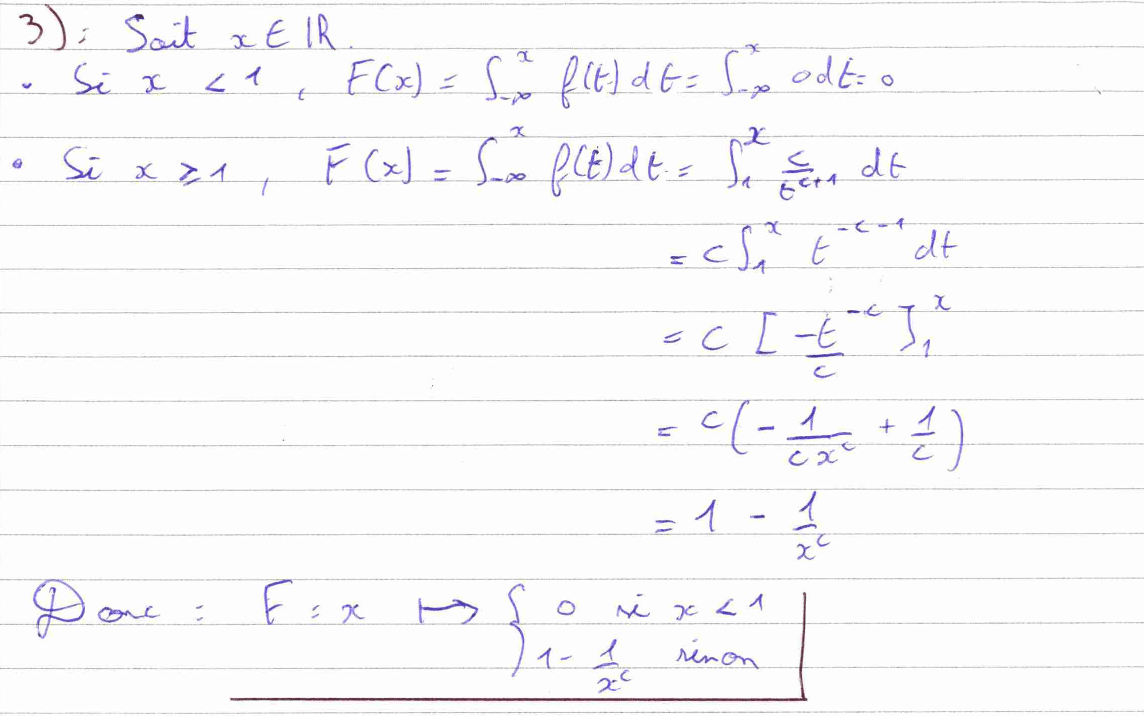 3) : Soit x ∈ IR.
• Si x < 1, F(x) = ∫_{-∞}^{x} f(t) dt = ∫_{-∞}^{x} 0 dt = 0
• Si x ≥ 1, F(x) = ∫_{-∞}^{x} f(t) dt = ∫_{1}^{x} c/t^{c+1} dt
= c ∫_{1}^{x} t^{-c-1} dt
= c [ -t^{-c}/c ]_{1}^{x}
= c ( - 1/(c x^{c}) + 1/c )
= 1 - 1/x^{c}
Donc : F : x ↦ { 0 si x < 1
1 - 1/x^{c} sinon